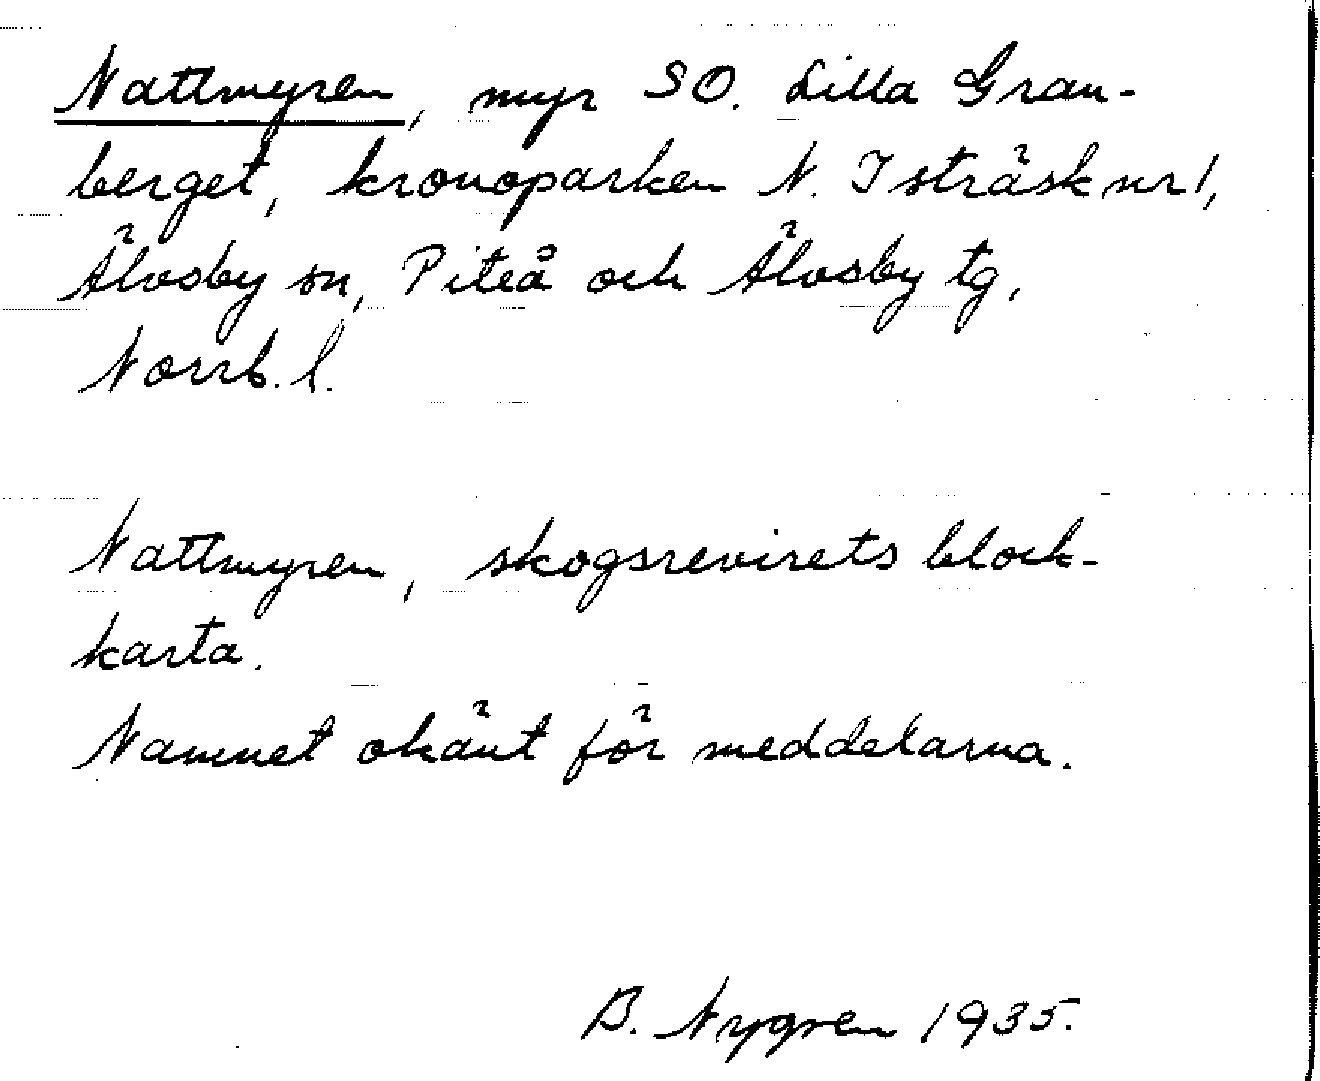 Nattmyren, myr SO. Lilla Gran-
berget, kronoparken N. Isträsk nr 1,
Älvsby sn, Piteå och Älvsby tg,
Norrb. l.
Nattmyren, skogsrevirets block-
karta.
Namnet okänt för meddelarna.
B. Nygren 1935.